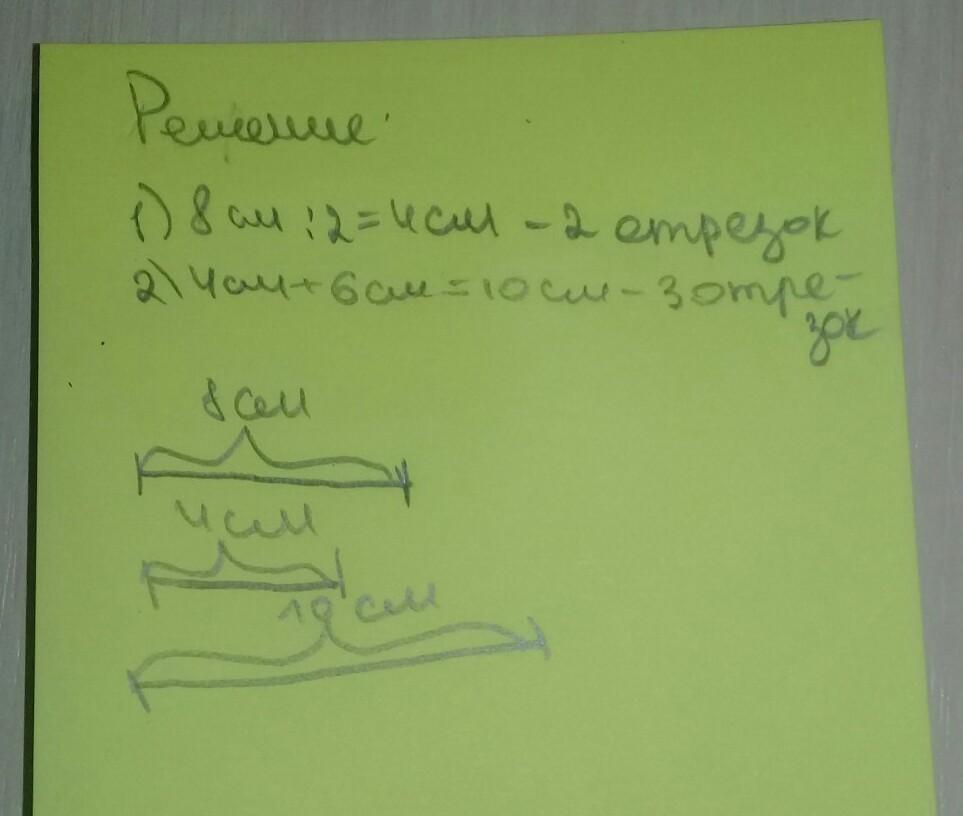 Решение:
1) 8 см : 2 = 4 см - 2 отрезок
2) 4 см + 6 см = 10 см - 3 отре-
зок
8 см
4 см
10 см